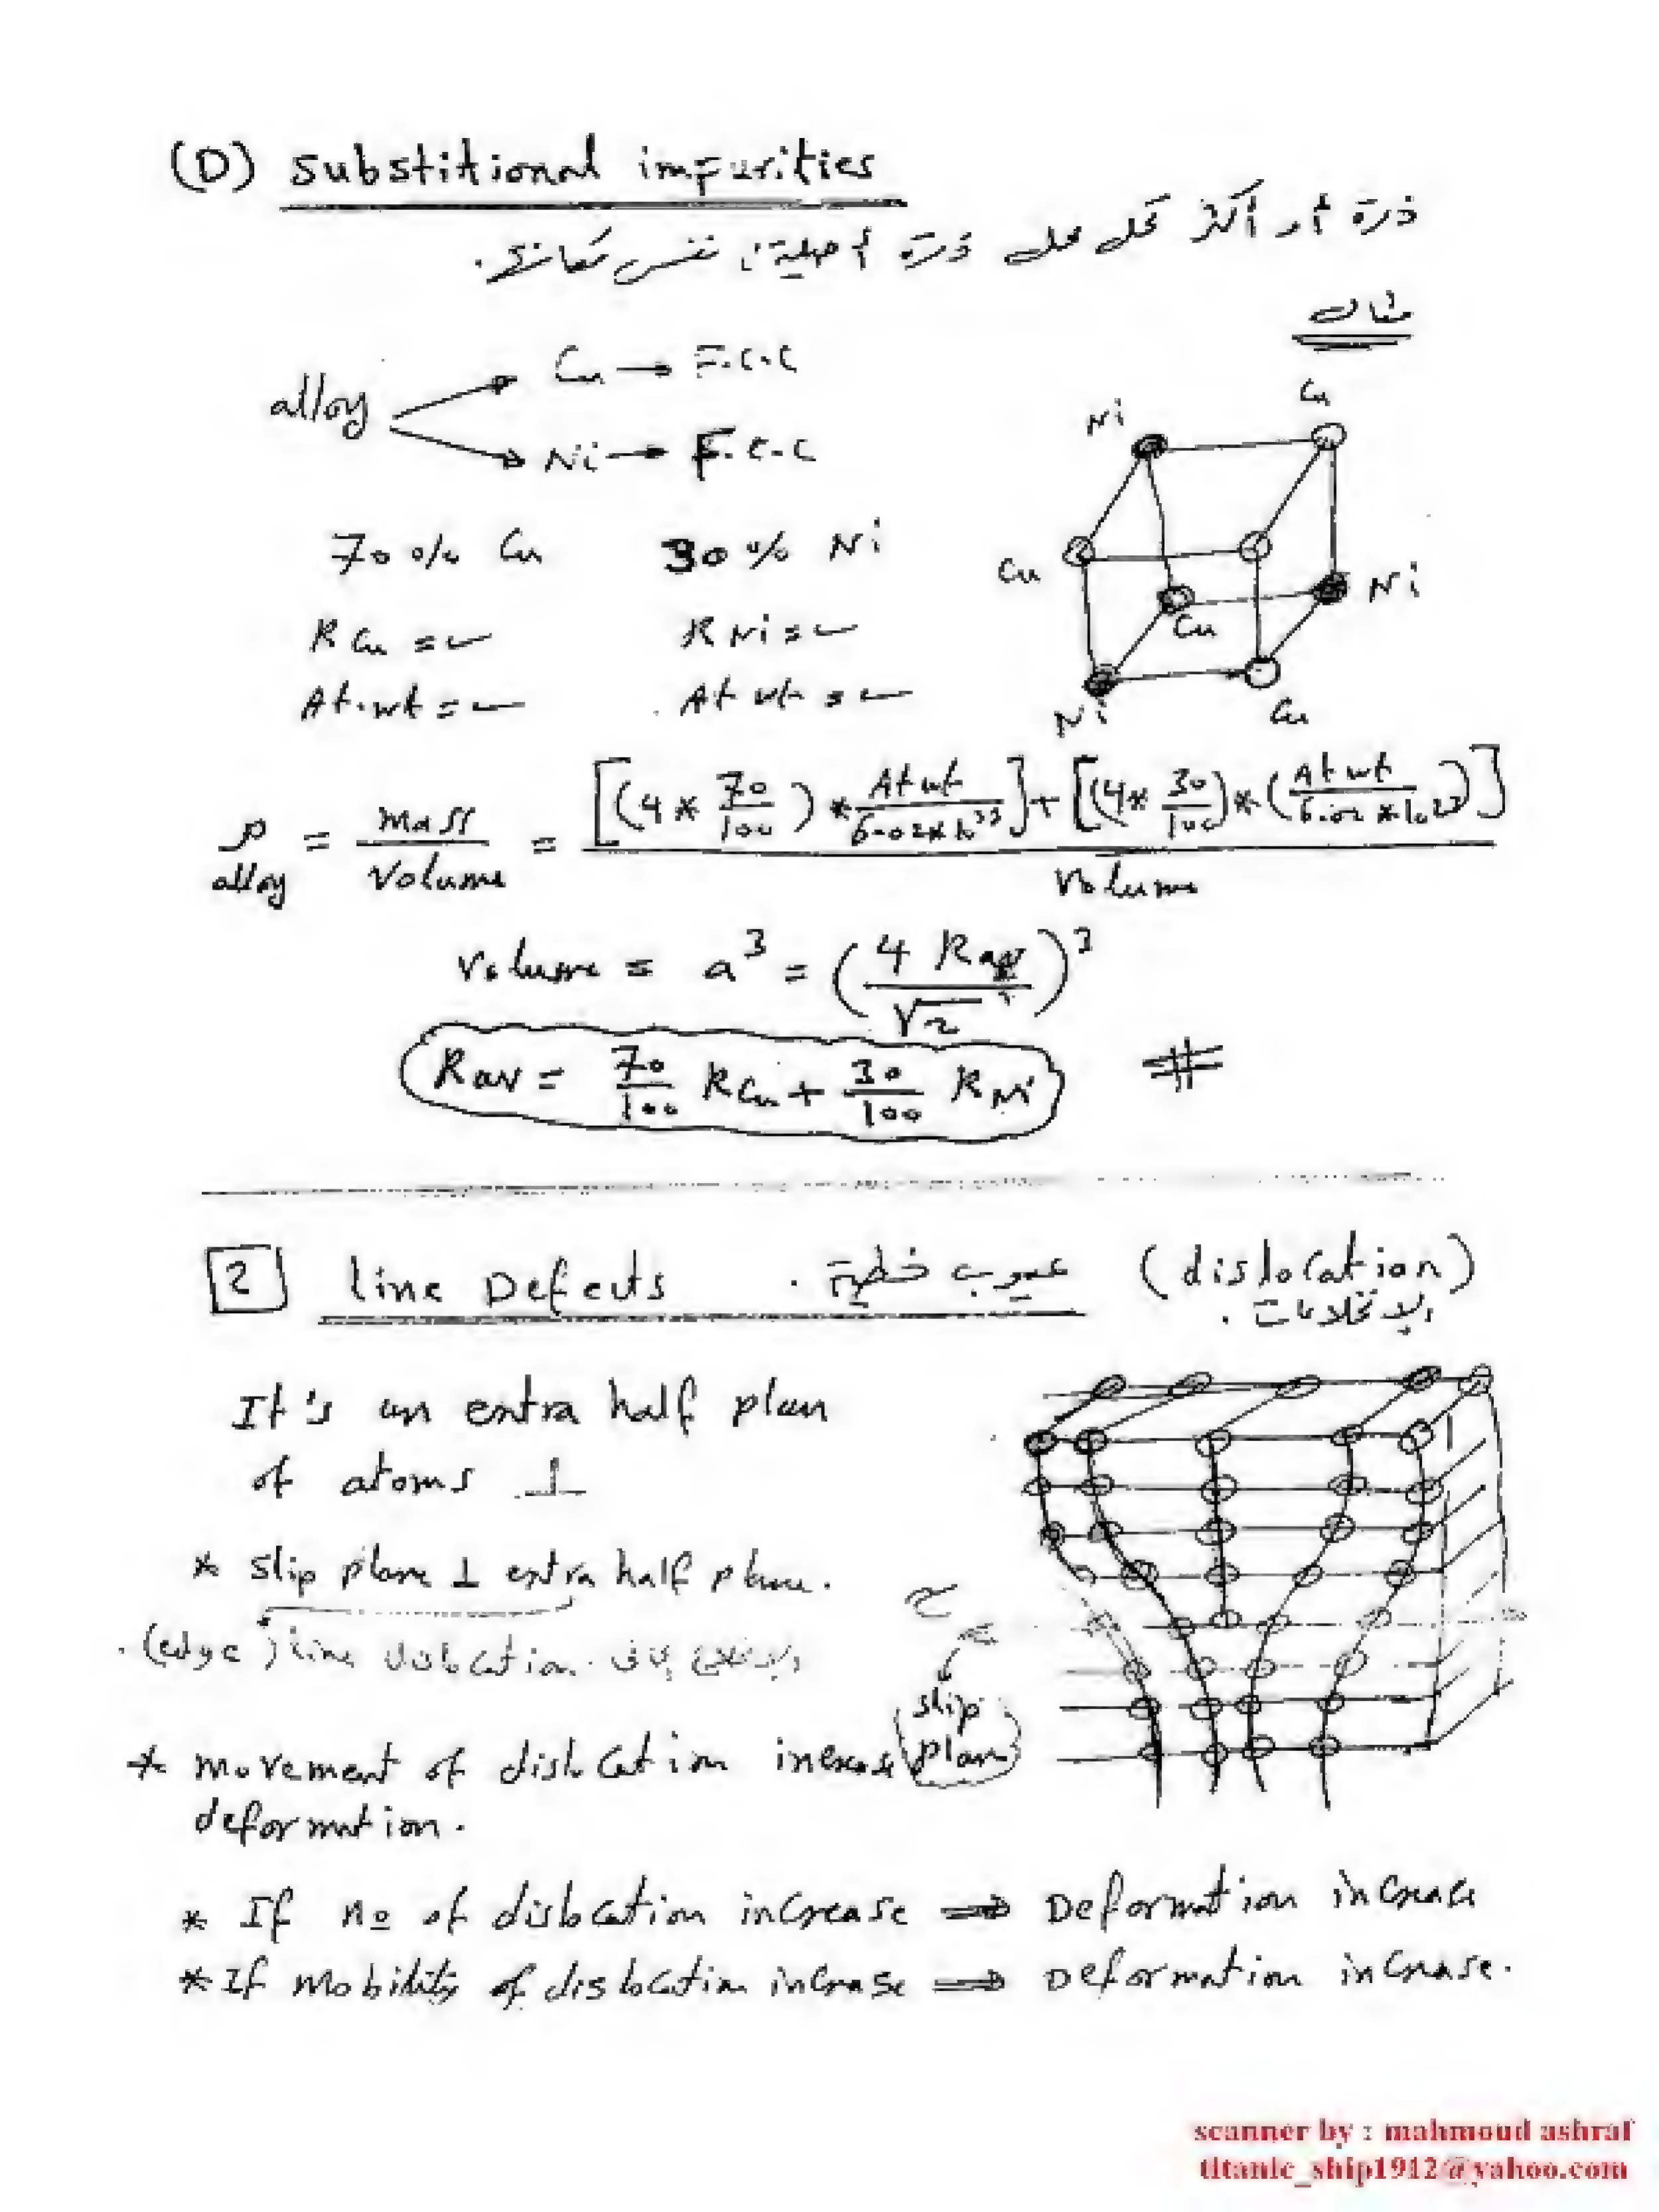 (D) Substitional impurities
ذرة أو أكثر تحل محل ذرة أصلية نفس مكانها.
مثال
alloy
Cu → F.C.C
Ni → F.C.C
70 % Cu 30 % Ni
R Cu = ✓ R Ni = ✓
At.wt = ✓ At wt = ✓
Ni Cu
Cu Ni
Cu
Ni Cu
ρ alloy = mass / Volume = [(4 * 70/100) * At wt / 6.02*10^23] + [(4 * 30/100) * (At wt / 6.02*10^23)] / Volume
Volume = a^3 = (4 Rav / √2)^3
Rav = 70/100 RCu + 30/100 RNi #
2 line Defects عيوب خطية. (dislocation)
الإنخلاعات.
It's an extra half plan
of atoms ⊥
* slip plane ⊥ extra half plane.
(edge) line dislocation.
slip
plan
* movement of dislocation increase
deformation.
* If no of dislocation increase ⇒ Deformation increase
* If Mobility of dislocation increase ⇒ Deformation increase.
scanner by : mahmoud ashraf
titanic_ship1912@yahoo.com